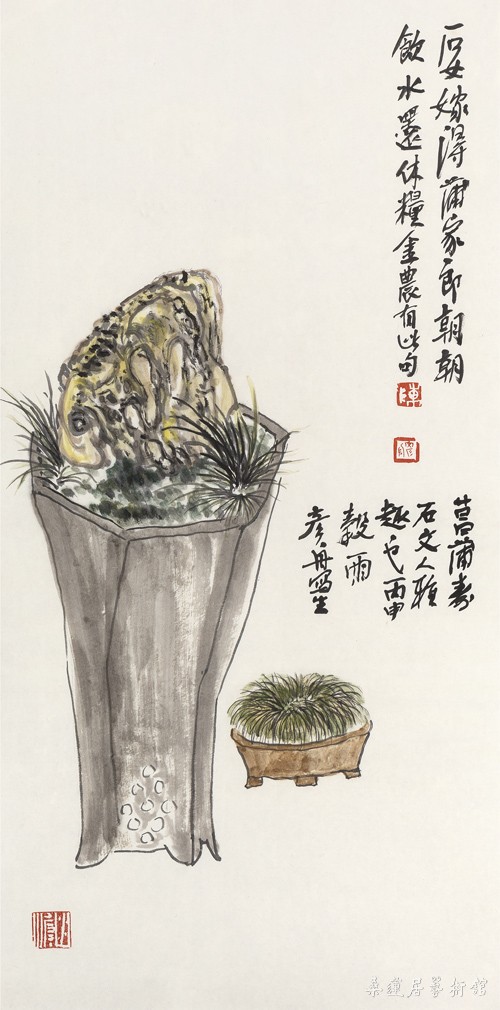 石女嫁得蒲家郎朝朝
飲水還休糧金農有此句
菖蒲壽
石文人雅
趣也丙申
穀雨
彥舟寫生
陳
桑蓮居藝術館